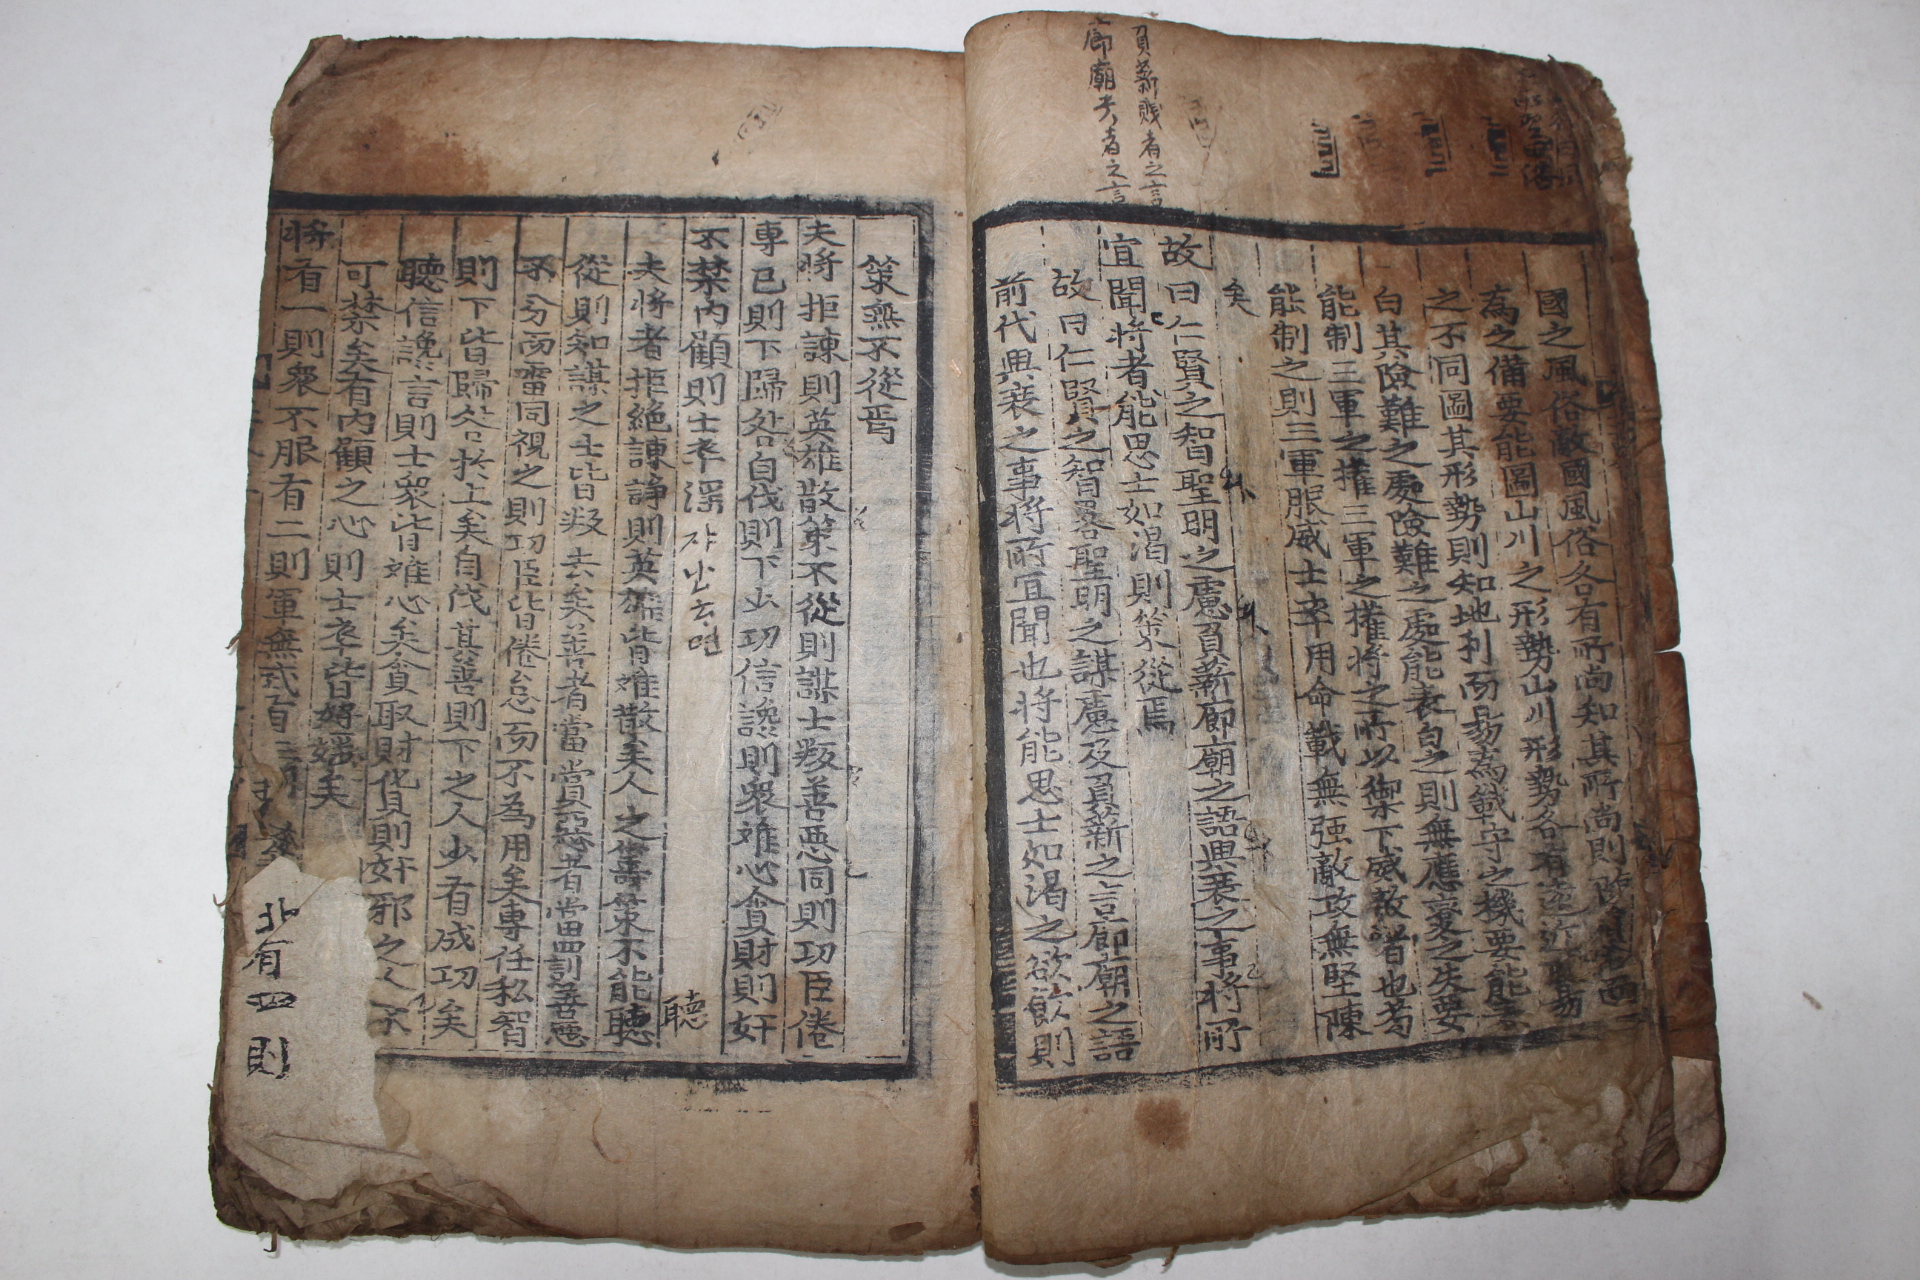 負薪賤者之言
廊廟貴者之言
國之風俗敵國風俗各有所尚知其所尚則
為之備要能圖山川之形勢山川形勢各有遠近險易
之不同圖其形勢則知地利而易為戰守之機要能表
白其險難之處險難之處能表白之則無應變之失要
能制三軍之權三軍之權將之所以御下威敵者也苟
能制之則三軍服威士卒用命戰無強敵攻無堅陳
矣
故曰仁賢之智聖明之慮負薪廊廟之語興衰之事將所
宜聞將者能思士如渴則策從焉
故曰仁賢之智畧聖明之謀慮及負薪之言廊廟之語
前代興衰之事將所宜聞也將能思士如渴之欲飲則
策無不從焉
夫將拒諫則英雄散策不從則謀士叛善惡同則功臣倦
專己則下歸咎自伐則下少功信讒則衆離心貪財則奸
不禁內顧則士卒淫
聽
夫將者拒絕諫諍則英雄皆離散矣人之籌策不能聽
從則知謀之士皆叛去矣善者當賞惡者當罰善惡
不分而雷同視之則功臣皆倦怠而不為用矣專任私智
則下皆歸咎於上矣自伐其善則下之人少有成功矣
聽信讒言則士衆皆離心矣貪取財貨則奸邪之人不
可禁矣有內顧之心則士卒皆婬矣
將有一則衆不服有二則軍無式有三則
北有四則